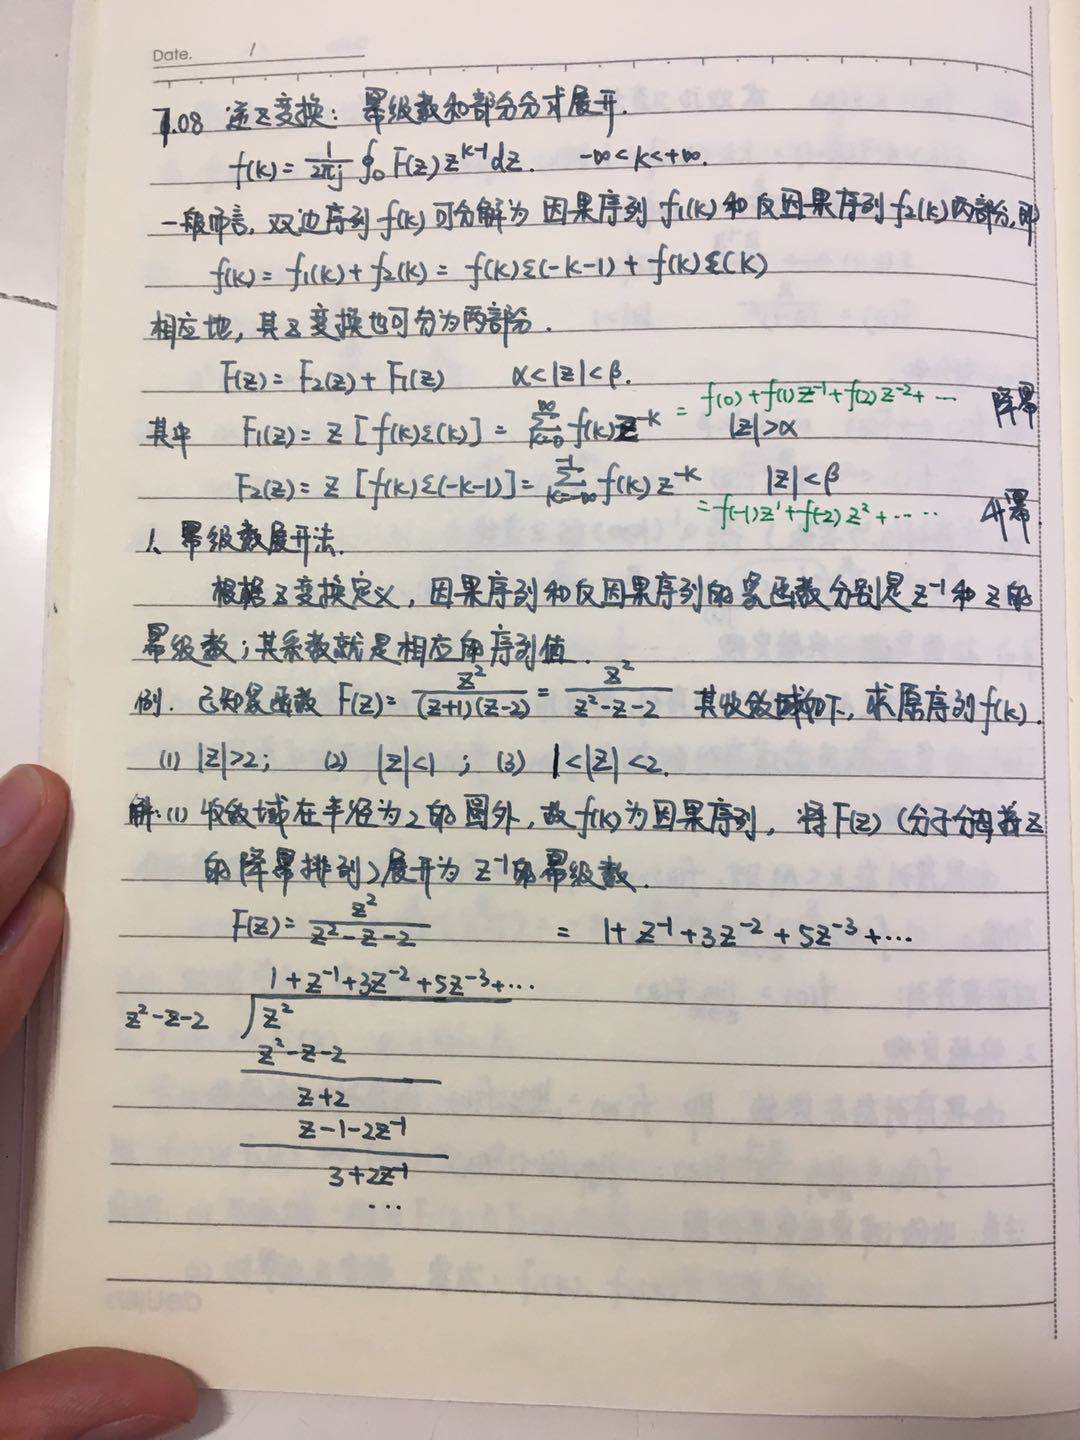 Date. 1
7.08 逆Z变换：幂级数和部分分式展开.
f(k) = 1/2πj ∮₀ F(z) z^{k-1} dz. -∞<k<+∞.
一般而言，双边序列f(k)可分解为 因果序列 f₁(k) 和 反因果序列 f₂(k)两部分，即
f(k) = f₁(k) + f₂(k) = f(k)ε(-k-1) + f(k)ε(k)
相应地，其z变换也可分为两部分.
F(z) = F₂(z) + F₁(z) α<|z|<β.
其中 F₁(z) = z [f(k)ε(k)] = Σ_{k=0}^{∞} f(k) z^{-k} = f(0)+f(1)z⁻¹+f(2)z⁻²+… |z|>α 降幂
F₂(z) = z [f(k)ε(-k-1)] = Σ_{k=-∞}^{-1} f(k) z^{-k} |z|<β
= f(-1)z¹+f(-2)z²+…… 升幂
1、幂级数展开法.
根据z变换定义，因果序列和反因果序列的象函数分别是z⁻¹和z的
幂级数；其系数就是相应的序列值.
例. 已知象函数 F(z) = z²/((z+1)(z-2)) = z²/(z²-z-2) 其收敛域如下，求原序列f(k).
(1) |z|>2; (2) |z|<1; (3) 1<|z|<2.
解:(1) 收敛域在半径为2的圆外，故f(k)为因果序列，将F(z)(分子分母按z
的降幂排列)展开为z⁻¹的幂级数.
F(z) = z²/(z²-z-2) = 1+z⁻¹+3z⁻²+5z⁻³+…
1+z⁻¹+3z⁻²+5z⁻³+…
z²-z-2 z²
z²-z-2
z+2
z-1-2z⁻¹
3+2z⁻¹
…